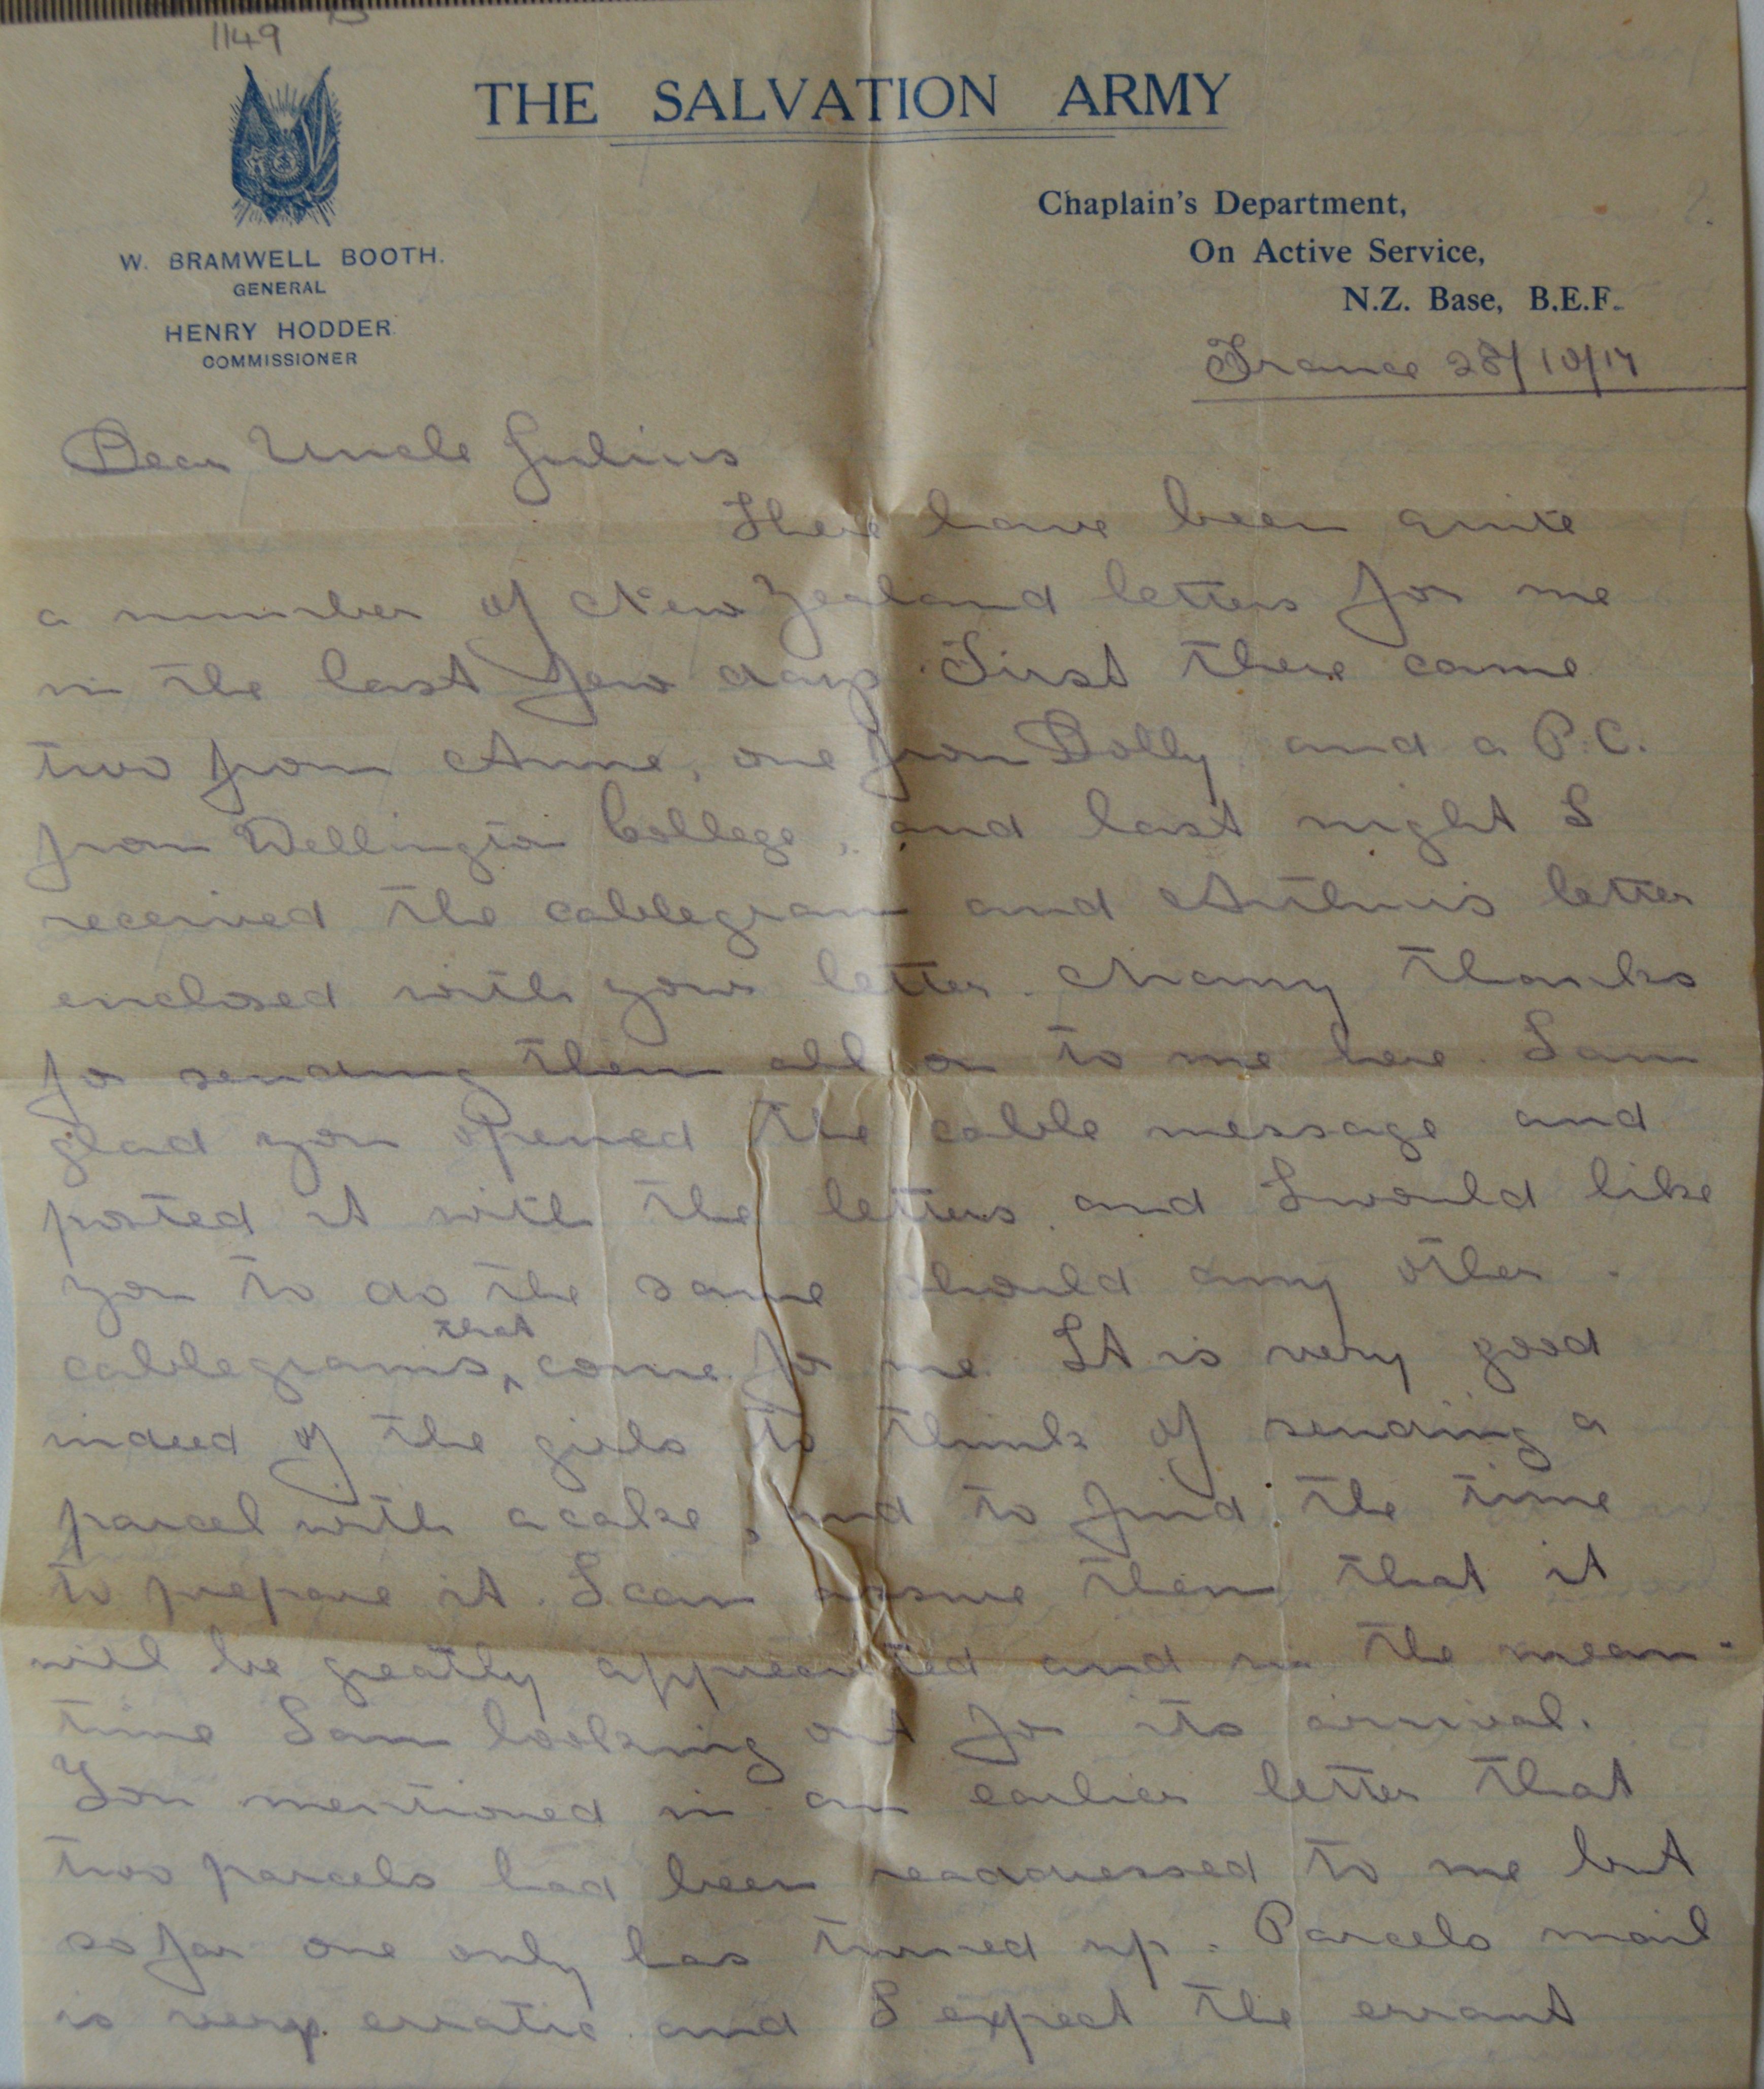 1149
THE SALVATION ARMY
W. BRAMWELL BOOTH.
GENERAL
HENRY HODDER.
COMMISSIONER
Chaplain's Department,
On Active Service,
N.Z. Base, B.E.F.
France 28/10/17
Dear Uncle Julius
There have been quite
a number of New Zealand letters for me
in the last few days. First there came
two from Anne, one from Dolly and a P.C.
from Wellington College, and last night I
received the cablegram and Arthur's letter
enclosed with your letter. Many thanks
for sending them all on to me here. I am
glad you opened the cable message and
posted it with the letters and I would like
you to do the same should any other
cablegrams that come for me. It is very good
indeed of the girls to think of sending a
parcel with a cake, and to find the time
to prepare it. I can assure them that it
will be greatly appreciated and in the mean-
time I am looking out for its arrival.
You mentioned in an earlier letter that
two parcels had been readdressed to me but
so far one only has turned up. Parcels mail
is very erratic and I expect the errant